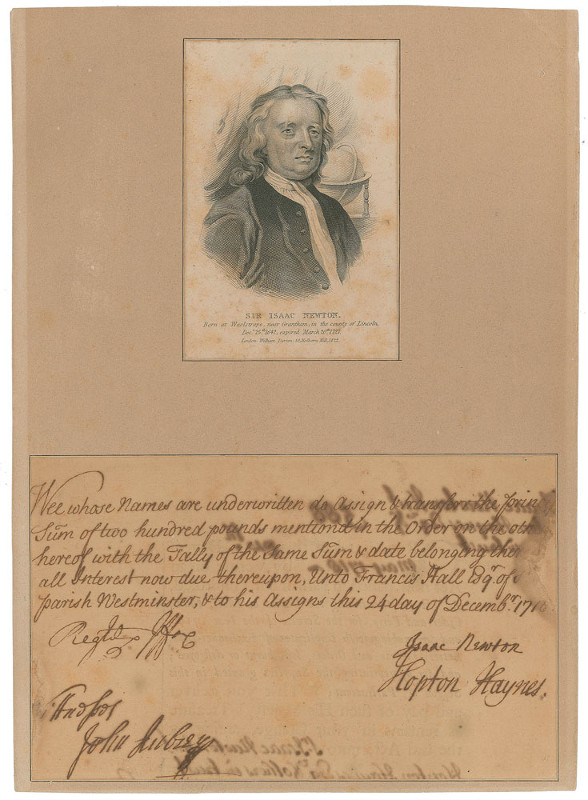 SIR ISAAC NEWTON.
Born at Woolstrope, near Grantham, in the county of Lincoln,
Dec. 25th 1642, expired March 20th 1727.
London William Darton, 58 Holborn Hill, 1822.
Wee whose Names are underwritten do Assign & transferr the prin
Sum of two hundred pounds mentiond in the Order on the oth
hereof with the Tally of the Same Sum & date belonging ther
all Interest now due thereupon, Unto Francis Hall Esqr. of
parish Westminster, & to his Assigns this 24 day of Decembr. 171
Isaac Newton
Hopton Haynes.
John